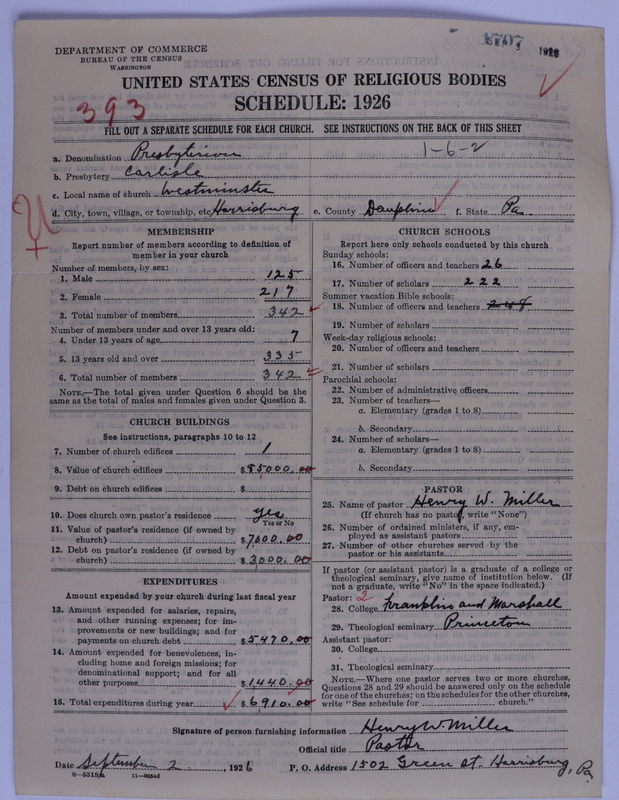 DEPARTMENT OF COMMERCE
BUREAU OF THE CENSUS
WASHINGTON
1707
SEP 3 1926
UNITED STATES CENSUS OF RELIGIOUS BODIES
SCHEDULE: 1926
393
FILL OUT A SEPARATE SCHEDULE FOR EACH CHURCH. SEE INSTRUCTIONS ON THE BACK OF THIS SHEET
a. Denomination Presbyterian
1-6-2
b. Presbytery Carlisle
c. Local name of church Westminster
d. City, town, village, or township, etc. Harrisburg e. County Dauphin f. State Pa.
U
MEMBERSHIP
Report number of members according to definition of
member in your church
Number of members, by sex:
1. Male 125
2. Female 217
3. Total number of members 342
Number of members under and over 13 years old:
4. Under 13 years of age 7
5. 13 years old and over 335
6. Total number of members 342
NOTE.—The total given under Question 6 should be
same as the total of males and females given under Question 3.
CHURCH BUILDINGS
See instructions, paragraphs 10 to 12
7. Number of church edifices 1
8. Value of church edifices $85000.00
9. Debt on church edifices $
10. Does church own pastor's residence yes
Yes or No
11. Value of pastor's residence (if owned by
church) $7,000.00
12. Debt on pastor's residence (if owned by
church) $3000.00
EXPENDITURES
Amount expended by your church during last fiscal year
13. Amount expended for salaries, repairs,
and other running expenses; for im-
provements or new buildings; and for
payments on church debt $5470.00
14. Amount expended for benevolences, in-
cluding home and foreign missions; for
denominational support; and for all
other purposes $1,440.00
15. Total expenditures during year $6,910.00
CHURCH SCHOOLS
Report here only schools conducted by this church
Sunday schools:
16. Number of officers and teachers 26
17. Number of scholars 222
Summer vacation Bible schools:
18. Number of officers and teachers 248
19. Number of scholars
Week-day religious schools:
20. Number of officers and teachers
21. Number of scholars
Parochial schools:
22. Number of administrative officers
23. Number of teachers—
a. Elementary (grades 1 to 8)
b. Secondary
24. Number of scholars—
a. Elementary (grades 1 to 8)
b. Secondary
PASTOR
25. Name of pastor Henry W. Miller
(If church has no pastor, write "None")
26. Number of ordained ministers, if any, em-
ployed as assistant pastors
27. Number of other churches served by the
pastor or his assistants
If pastor (or assistant pastor) is a graduate of a college or
theological seminary, give name of institution below. (If
not a graduate, write "No" in the space indicated.)
Pastor: 2
28. College Franklin and Marshall
29. Theological seminary Princeton
Assistant pastor:
30. College
31. Theological seminary
NOTE.—Where one pastor serves two or more churches,
Questions 28 and 29 should be answered only on the schedule
for one of the churches; on the schedules for the other churches,
write "See schedule for church."
Signature of person furnishing information Henry W. Miller
Official title Pastor
Date September 2, 1926 P. O. Address 1502 Green St. Harrisburg, Pa.